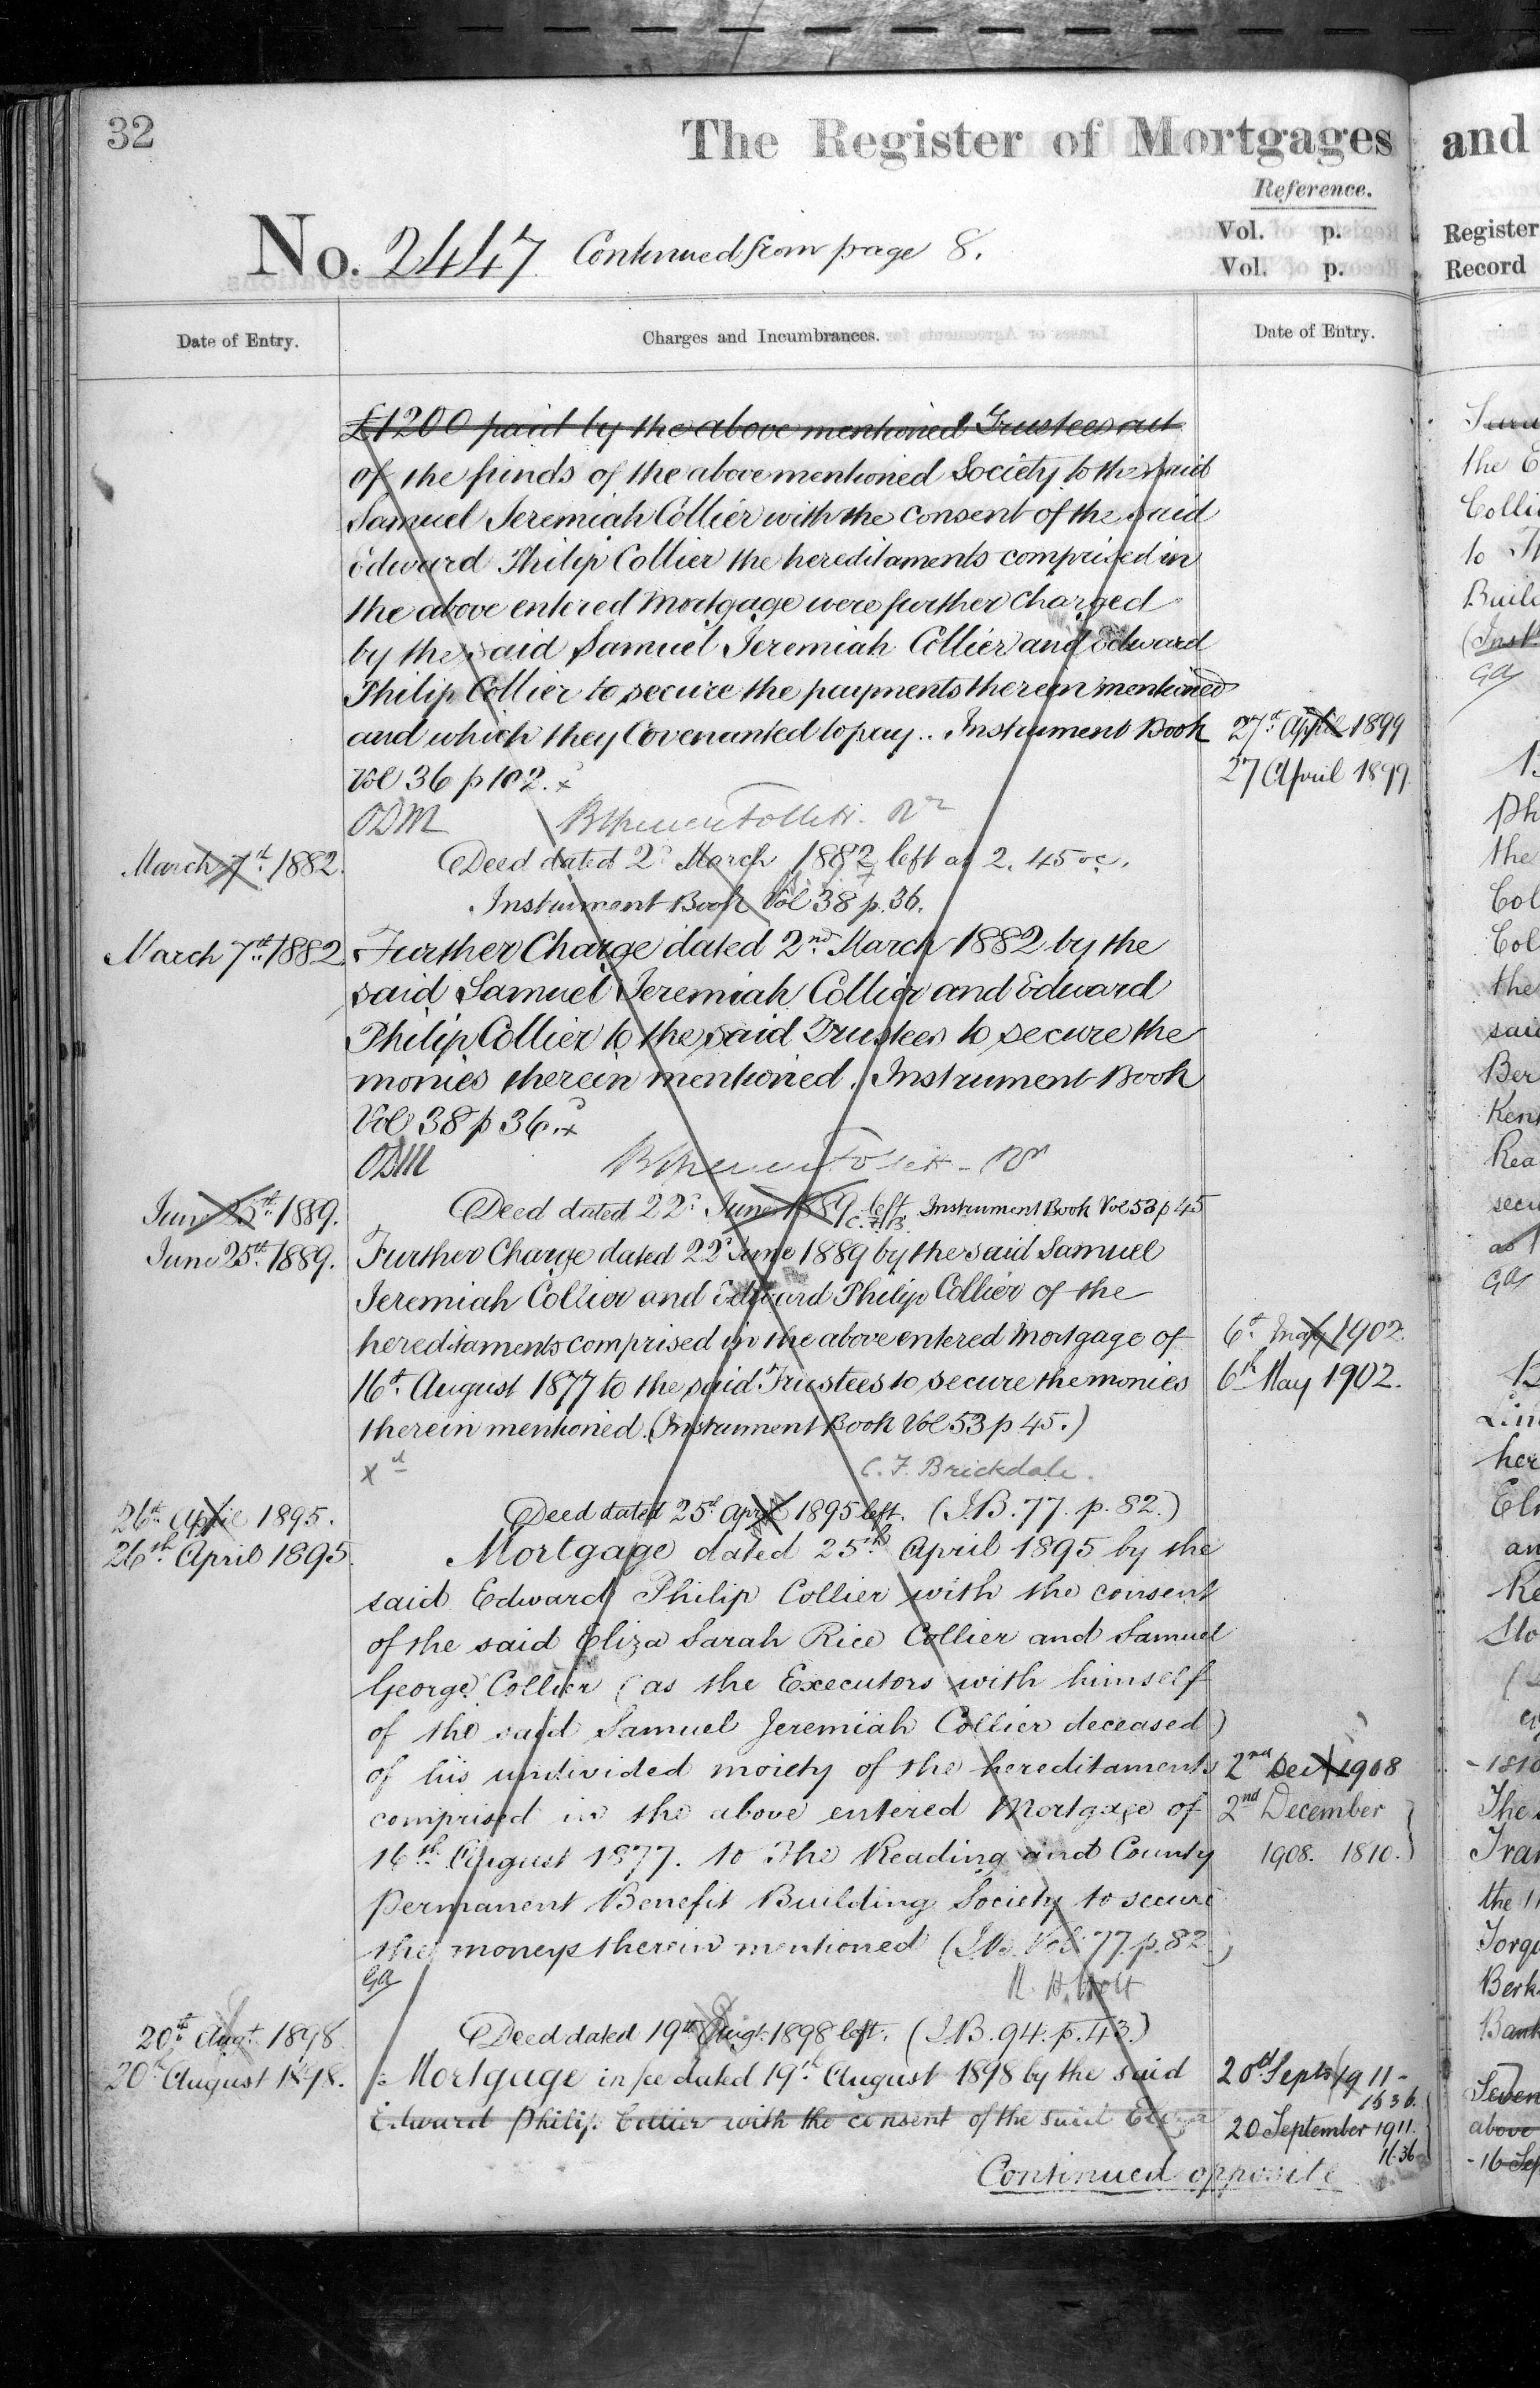 32
The Register of Mortgages and
Reference.
No. 2447 Continued from page 8.
Vol. p.
Vol. p.
Register
Record
Date of Entry.
Charges and Incumbrances.
Date of Entry.
£1200 paid by the above mentioned Trustees out
of the funds of the above mentioned Society to the said
Samuel Jeremiah Collier with the consent of the said
Edward Philip Collier the hereditaments comprised in
the above entered Mortgage were further charged
by the said Samuel Jeremiah Collier and Edward
Philip Collier to secure the payments therein mentioned
and which they Covenanted to pay.. Instrument Book
Vol 36 p 102.
ODM
March 7th 1882. Deed dated 2d March 1882 left at 2.45
Instrument Book Vol 38 p. 36.
March 7th 1882 Further Charge dated 2nd March 1882 by the
said Samuel Jeremiah Collier and Edward
Philip Collier to the said Trustees to secure the
monies therein mentioned. Instrument Book
Vol 38 p 36.
ODM
June 25th 1889. Deed dated 22d June 1889 left Instrument Book Vol 53 p 45
C.F.B.
June 25th 1889. Further Charge dated 22d June 1889 by the said Samuel
Jeremiah Collier and Edward Philip Collier of the
hereditaments comprised in the above entered Mortgage of
16th August 1877 to the said Trustees to secure the monies
therein mentioned. (Instrument Book Vol 53 p 45.)
C. F. Brickdale.
26th April 1895. Deed dated 25th April 1895 left. (I.B. 77. p. 82.)
26th April 1895. Mortgage dated 25th April 1895 by the
said Edward Philip Collier with the consent
of the said Eliza Sarah Rice Collier and Samuel
George Collier (as the Executors with himself
of the said Samuel Jeremiah Collier deceased)
of his undivided moiety of the hereditaments
comprised in the above entered Mortgage of
16th August 1877. to The Reading and County
Permanent Benefit Building Society to secure
the moneys therein mentioned (I.B. Vol. 77. p. 82.)
GA
R. H. Holt
20th Augt. 1898 Deed dated 19th Augt. 1898 left. (I.B. 94. p. 43.)
20th August 1898. Mortgage in fee dated 19th August 1898 by the said
Edward Philip Collier with the consent of the said Eliza
Continued opposite
27th April 1899
27 April 1899
6th May 1902.
6th May 1902.
2nd Dec 1908
2nd December
1908. 1810.
20th Septr 1911
1636.
20 September 1911.
1636
the
Colli
to
Buil
(Inst.
GA
Ph
the
Col
Col
the
said
Ber
Ken
Rea
secu
GA
her
an
Ke
- 1810
The
Tran
the
Torq
Berk
Bank
Seven
above
-16 Sep